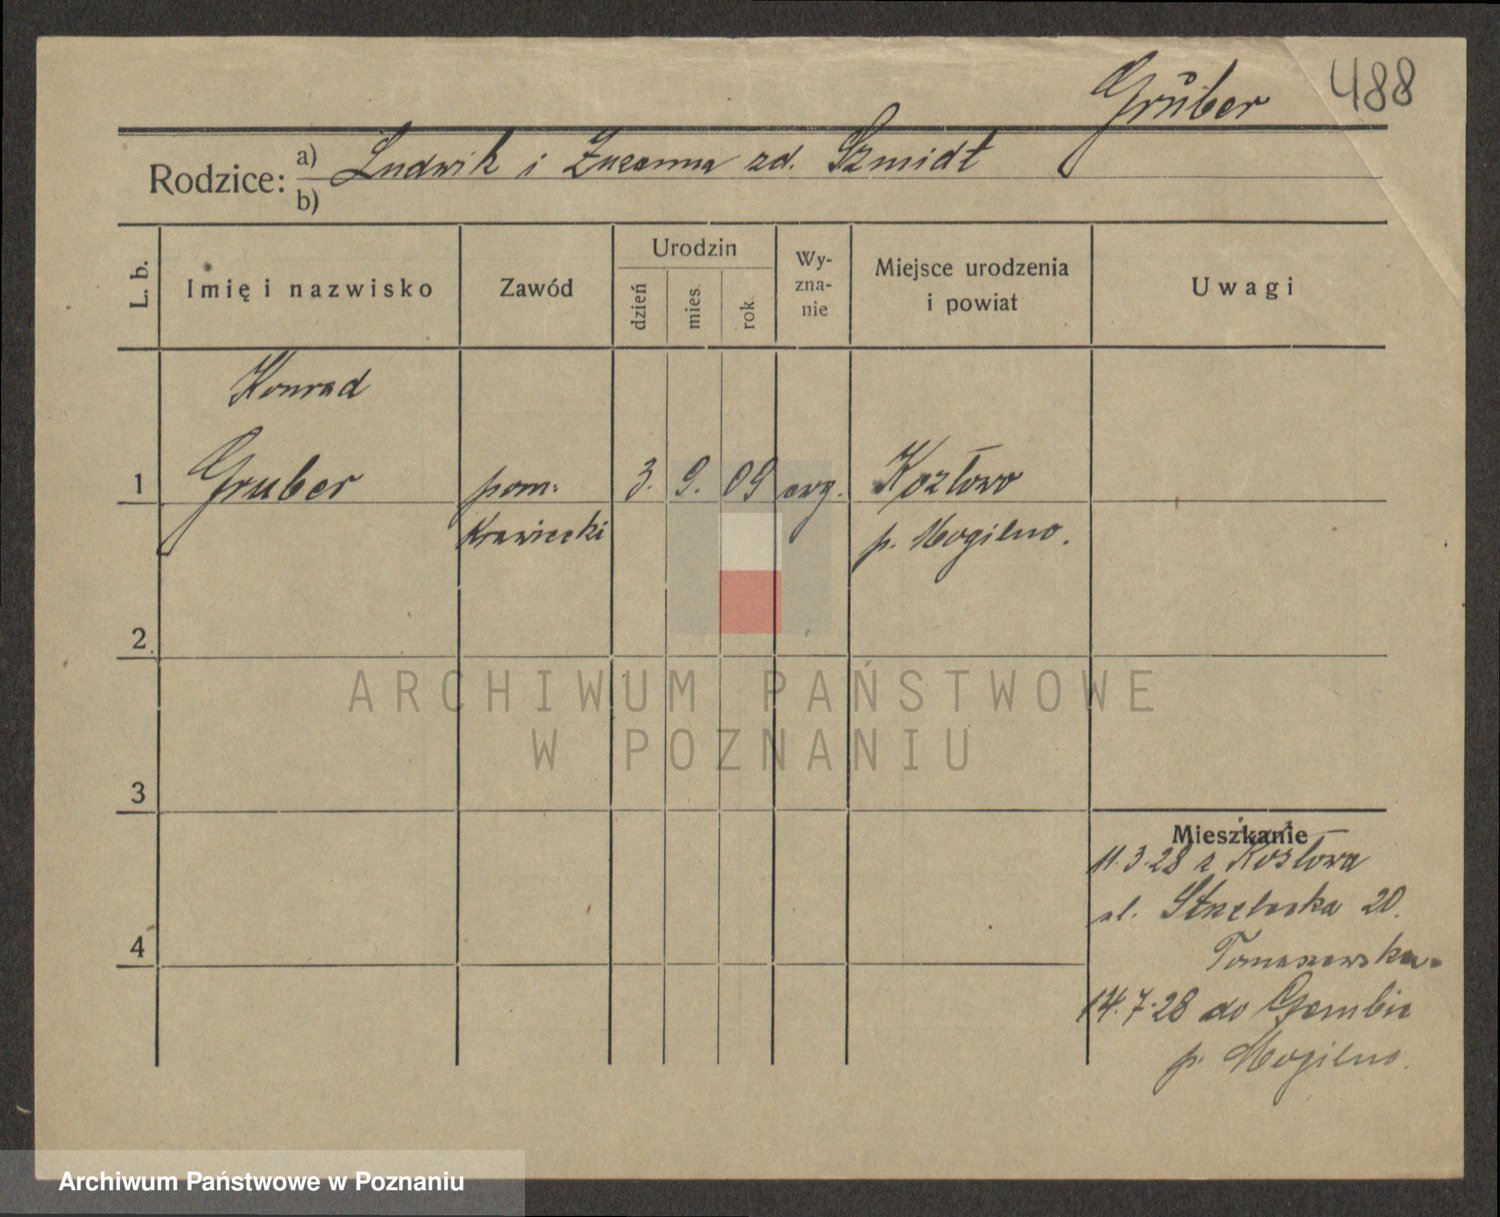 Grüber 488
Rodzice: a) Ludwik i Zuzanna zd. Szmidt
b)
L. b.
Imię i nazwisko
Zawód
Urodzin
dzień
mies.
rok
Wy-
zna-
nie
Miejsce urodzenia
i powiat
Uwagi
Konrad
1 Gruber pom. 3. 9. 09 ewg. Kozłowo
Krawiecki p. Mogilno.
2
ARCHIWUM PAŃSTWOWE
W POZNANIU
3
Mieszkanie
11.3.28 z Kozłowa
ul. Strzelecka 20.
4 Tomaszewska
14.7.28 do Gembic
p. Mogilno.
Archiwum Państwowe w Poznaniu